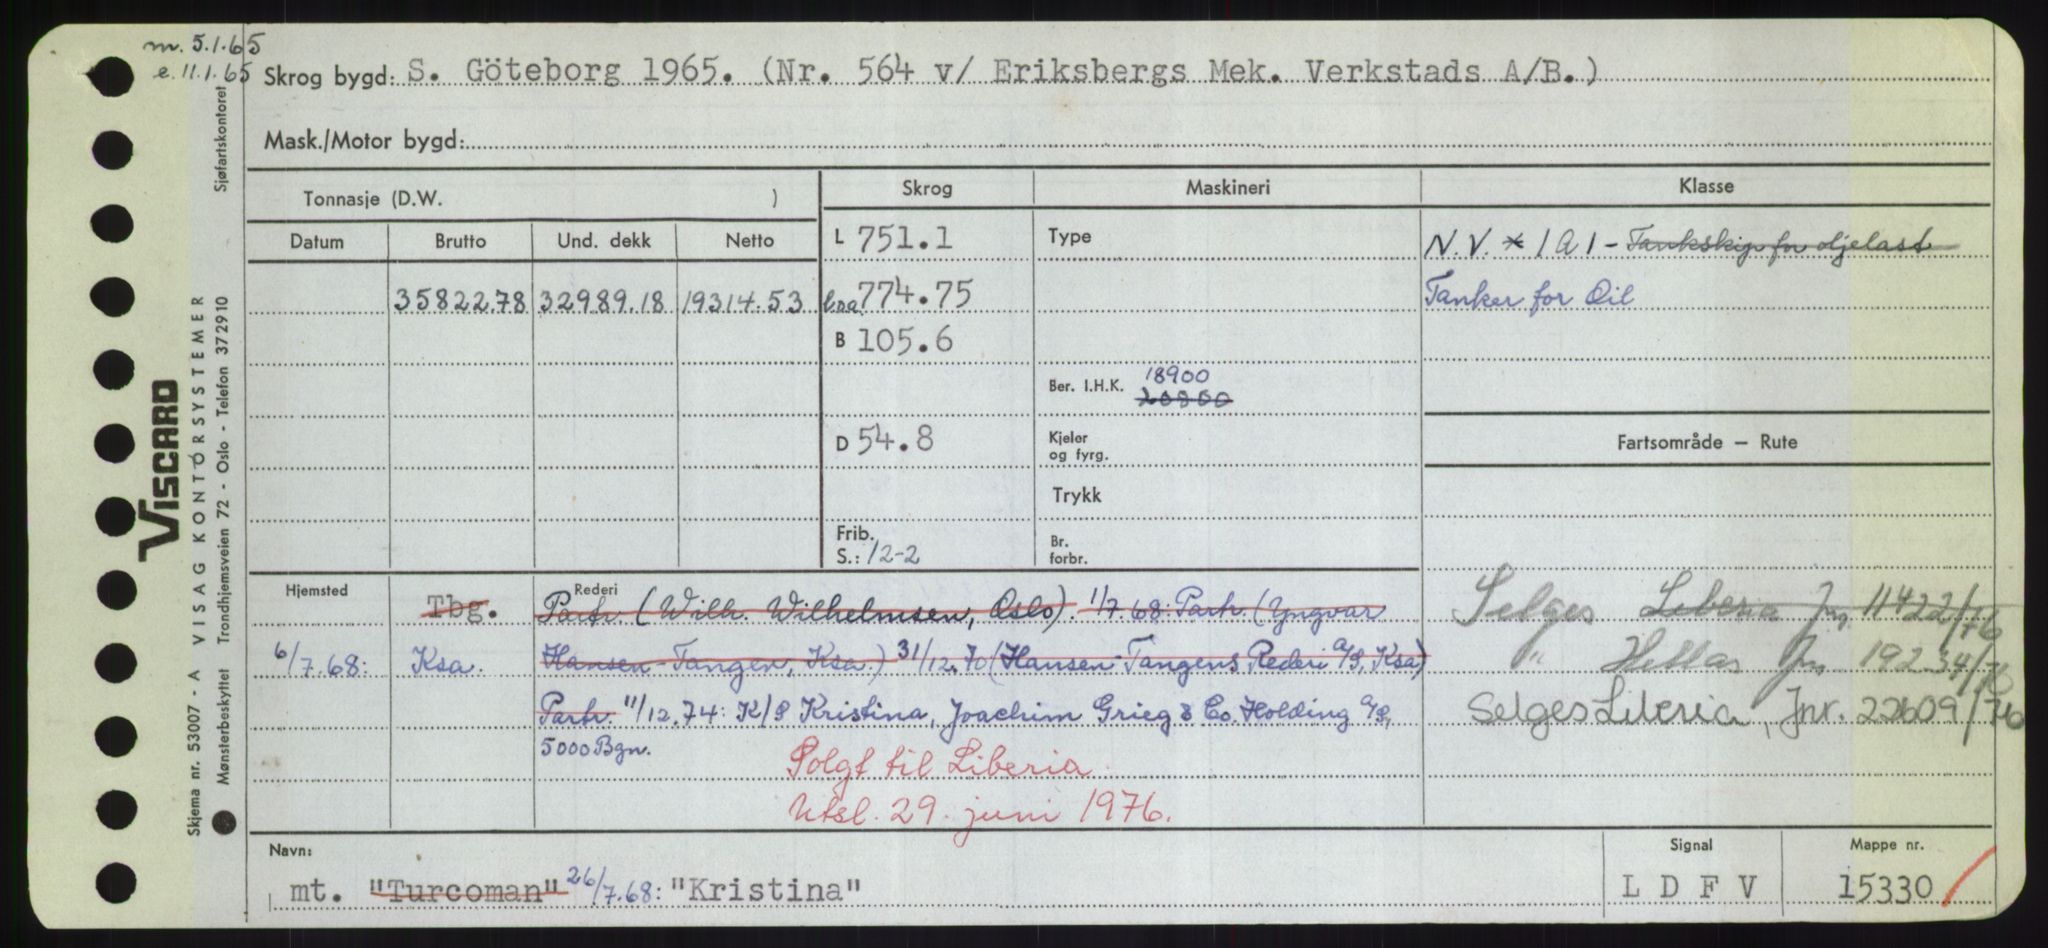 m. 5.1.65
e. 11.1.65
Skrog bygd: S. Göteborg 1965. (Nr. 564 v/ Eriksbergs Mek. Verkstads A/B.)
Mask./Motor bygd:
Tonnasje (D.W. )
Skrog
Maskineri
Klasse
Datum
Brutto
Und. dekk
Netto
L 751.1
Type
N.V. * 1 A 1 - Tankskip for oljelast
35822.78
32989.18
19314.53
l.o.a. 774.75
Tanker for Oil
B 105.6
Ber. I.H.K. 18900
20900
D 54.8
Kjeler
og fyrg.
Fartsområde – Rute
Trykk
Frib.
S.: 12-2
Br.
forbr.
Hjemsted
Tbg.
Rederi
Partr. (Wilh. Wilhelmsen, Oslo). 1/7.68: Partr. (Yngvar
Selges Liberia Jnr. 11422/76
6/7.68: Ksa. Hansen-Tangen, Ksa.) 31/12.70 (Hansen-Tangens Rederi A/S, Ksa)
" Hellas Jnr 19234/76
Partr. 11/12.74: K/S Kristina, Joachim Grieg & Co. Holding A/S,
Selges Liberia, Jnr. 22609/76
5000 Bgn.
Solgt til Liberia
Utsl. 29. juni 1976.
Navn:
Signal
Mappe nr.
mt. "Turcoman" 26/7.68: "Kristina"
L D F V
15330
VISCARD
Skjema nr. 53007 - A VISAG KONTORSYSTEMER
Mønsterbeskyttet Trondhjemsveien 72 - Oslo - Telefon 372910 Sjøfartskontoret